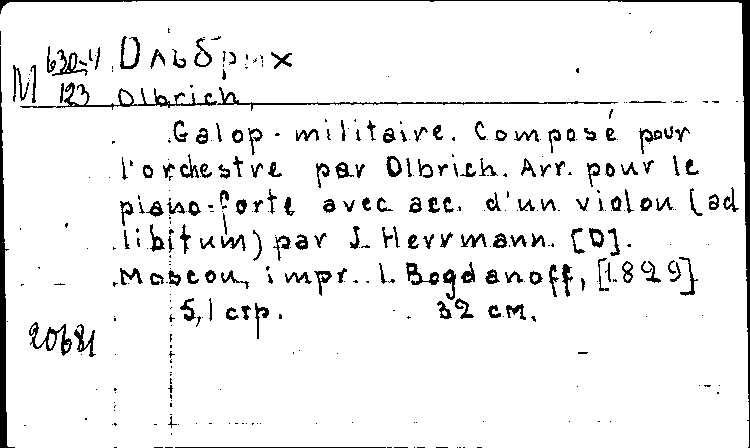 М 630-4/123 Ольбрих
Olbrich,
Galop-militaire. Composé pour
l'orchestre par Olbrich. Arr. pour le
piano-forte avec acc. d'un violon (ad
libitum) par J. Herrmann. [D].
Moscou, impr. L. Bogdanoff, [1829]
5,1 стр. 32 см.
20681